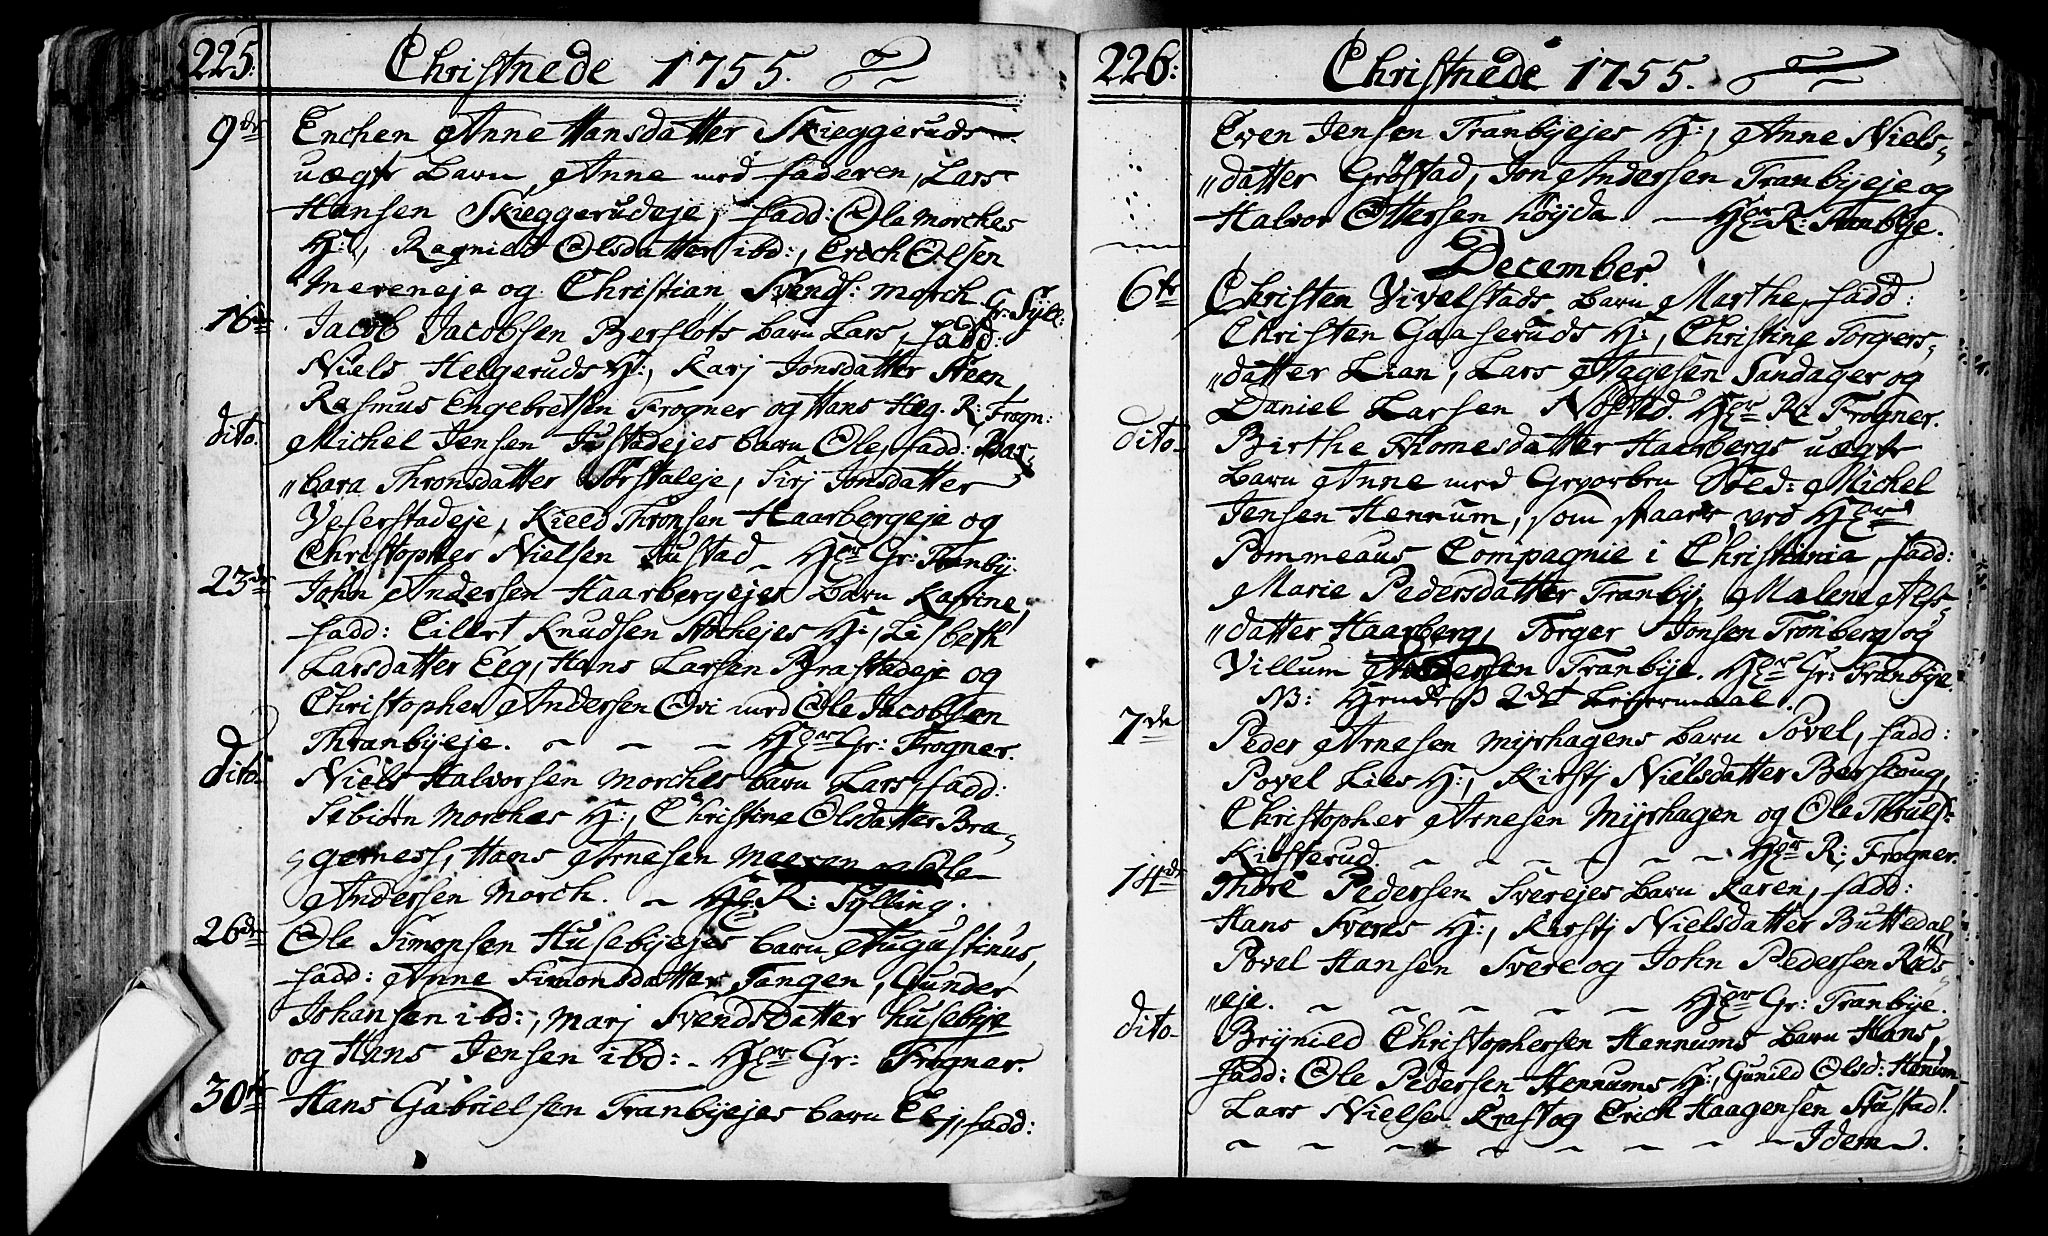 225.
Christnede 1755.
9de Enchen Anne Hansdatter Skieggeruds
uægte barn Anne med faderen, Lars
Hansen Skieggerudeje, fadd: Ola Morches
H:, Ragnild Olsdatter ibd:, Erich Olsen
Mereneje og Christian Svends: Morch. Gr: Syll:
16de Jacob Jacobsen Berflots barn Lars, fadd:
Niels Helgeruds H:, Karj Jonsdatter Steen,
Rasmus Engebretsen Frogner og Hans Hæg. R: Frogn:
dito. Michel Jensen Justadejes barn Ole, fadd: Bar-
"bara Thronsdatter Sørstaleje, Sirj Jonsdatter
Veserstadeje, Kield Thronsen Haarbergeje og
Christopher Nielsen Justad - Hr Gr: Tranby:
23de John Andersen Haarbergejes barn Katrine,
fadd: Eilert Knudsen Støchejes H:, Lisbeth
Larsdatter Eeg, Hans Larsen Brastadeje og
Christopher Andersen Ovi med Ole Jacobsen
Thranbyeje. ~ ~ ~ Hr Gr: Frogner.
Dito. Niels Halvorsen Morches barn Lars, fadd:
Sebiørn Morches H:, Christine Olsdatter Bra-
"gerness, Hans Arnesen Meeren og Ole
Andersen Morch. ~ Hr R: Sylling.
26de Ole Simonsen Husebyejes barn Augustinus,
fadd: Anne Simonsdatter Tangen, Gunder
Johansen ibd:, Marj Svendsdatter Husebye
og Hans Jensen ibd: - Hr Gr: Frogner.
30te Hans Gabrielsen Tranbyejes barn Elj, fadd:
226:
Christnede 1755.
Even Jensen Tranbyejes H:, Anne Niels-
"datter Grøstad, Jon Andersen Tranbyeje og
Halvor Ottersen Høyda. ~ Hr R: Tranbye.
December.
6te Christen Vivelstads barn Marthe, fadd:
Christen Gaaseruds H:, Christine Torgers-
"datter Lian, Lars Aagesen Sandager og
Daniel Larsen Nøsted. Hr R: Frogner.
dito. Birthe Thomesdatter Haarbergs uægte
barn Anne med Gevorben Sold: Michel
Jensen Hennum, som staar ved Hr
Pommeaus Compagnie i Christiania, fadd:
Marie Pedersdatter Tranby, Malene Alfs-
"datter Haarberg, Torger Jonsen Tronberg og
Villum Andersen Tranbye. Hr Gr: Tranbye.
NB: Hendes 2det Leyermaal.
7de Peder Arnesen Myrhagens barn Povel, fadd:
Povel Lies H:, Kirstj Nielsdatter Berskoug,
Christopher Arnesen Myrhagen og Ole Thruls:
Kiøsterud. ~ ~ ~ ~ ~ Hr R: Frogner.
14de Thore Pedersen Sverejes barn Karen, fadd:
Hans Sveres H:, Kirstj Nielsdatter Buttedal,
Povel Hansen Svere og John Pedersen Røds-
"eje. ~ ~ ~ ~ ~ Hr Gr: Tranbye.
dito. Brynild Christophersen Hennums barn Hans,
fadd: Ole Pedersen Hennums H:, Gunild Olsd: Henum
Lars Nielsen Kraft og Erich Haagensen Justad.
~ ~ ~ ~ ~ ~ ~ Idem.